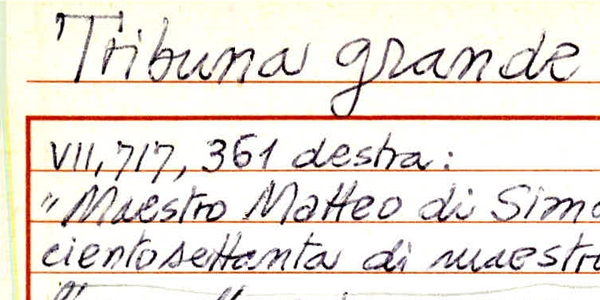 Tribuna grande
VII, 717, 361 destra:
"Maestro Matteo di Simo
cientosettanta di maestro